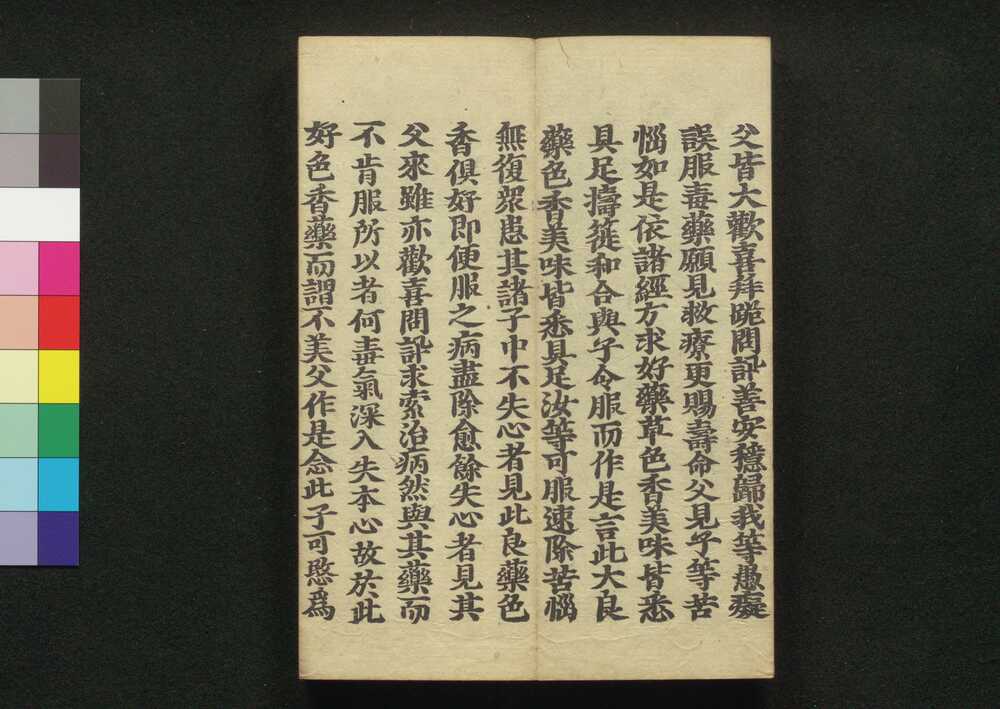 父皆大歡喜拜跪問訊善安穩歸我等愚癡
誤服毒藥願見救療更賜壽命父見子等苦
惱如是依諸經方求好藥草色香美味皆悉
具足擣簁和合與子令服而作是言此大良
藥色香美味皆悉具足汝等可服速除苦惱
無復衆患其諸子中不失心者見此良藥色
香俱好即便服之病盡除愈餘失心者見其
父來雖亦歡喜問訊求索治病然與其藥而
不肯服所以者何毒氣深入失本心故於此
好色香藥而謂不美父作是念此子可愍爲